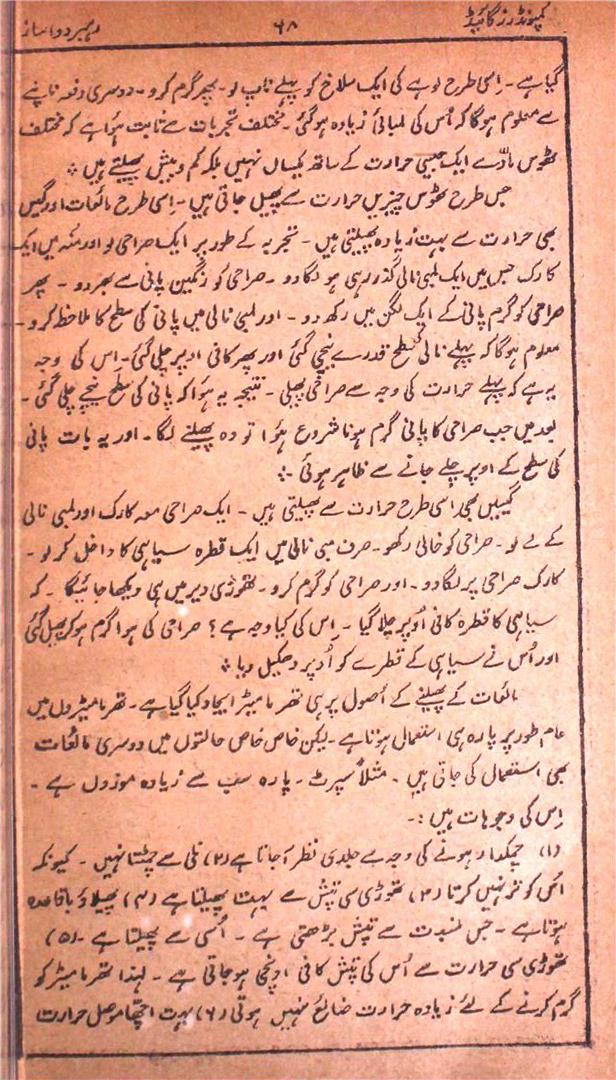 کمپونڈرز گائیڈ ۶۸ رہبر دواساز
گیا ہے۔ اِسی طرح لوہے کی ایک سلاخ کو پہلے ناپ لو۔ پھر گرم کرو۔ دوسری دفعہ ناپنے
سے معلوم ہوگا کہ اُس کی لمبائی زیادہ ہوگئی۔ مختلف تجربات سے ثابت ہُوا ہے کہ مختلف
ٹھوس مادّے ایک جیسی حرارت کے ساتھ یکساں نہیں بلکہ کم و بیش پھیلتے ہیں ۔:
جس طرح ٹھوس چیزیں حرارت سے پھیل جاتی ہیں۔ اِسی طرح مائعات اور گیس
بھی حرارت سے بہت زیادہ پھیلتی ہیں۔ تجربہ کے طور پر ایک صراحی لو اور منہ میں ایک
کارک جس میں ایک لمبی نالی گذر رہی ہو لگا دو۔ صراحی کو رنگین پانی سے بھر دو۔ پھر
صراحی کو گرم پانی کے ایک لگن میں رکھ دو۔ اور لمبی نالی میں پانی کی سطح کا ملاحظہ کرو۔
معلوم ہوگا کہ پہلے نالی کی سطح قدرے نیچی گئی اور پھر کافی اوپر چلی گئی۔ اِس کی وجہ
یہ ہے کہ پہلے حرارت کی وجہ سے صراحی پھیلی۔ نتیجہ یہ ہُوا کہ پانی کی سطح نیچے چلی گئی۔
بعد میں جب صراحی کا پانی گرم ہونا شروع ہُوا تو وہ پھیلنے لگا۔ اور یہ بات پانی
کی سطح کے اوپر چلے جانے سے ظاہر ہوئی ۔:
گیسیں بھی اِسی طرح حرارت سے پھیلتی ہیں۔ ایک صراحی معہ کارک اور لمبی نالی
کے لے لو۔ صراحی کو خالی رکھو۔ صرف لمبی نالی میں ایک قطرہ سیاہی کا داخل کر لو۔
کارک صراحی پر لگا دو۔ اور صراحی کو گرم کرو۔ تھوڑی دیر میں ہی دیکھا جائیگا۔ کہ
سیاہی کا قطرہ کافی اُوپر چلا گیا۔ اِس کی کیا وجہ ہے؟ صراحی کی ہوا گرم ہو کر پھیل گئی
اور اُس نے سیاہی کے قطرے کو اُوپر دھکیل دیا ۔:
مائعات کے پھیلنے کے اُصول پر ہی تھرمامیٹر ایجاد کیا گیا ہے۔ تھرمامیٹروں میں
عام طور پر پارہ ہی استعمال ہوتا ہے۔ لیکن خاص خاص حالتوں میں دوسری مائعات
بھی استعمال کی جاتی ہیں۔ مثلاً سپرٹ۔ پارہ سب سے زیادہ موزوں ہے۔
اِس کی وجوہات ہیں:۔
(۱) چمکدار ہونے کی وجہ سے جلدی نظر آجاتا ہے (۲) نلی سے چمٹتا نہیں۔ کیونکہ
اُس کو تر نہیں کرتا (۳) تھوڑی سی تپش سے بہت پھیلتا ہے (۴) پھیلاؤ باقاعدہ
ہوتا ہے۔ جس نسبت سے تپش بڑھتی ہے۔ اُسی سے پھیلتا ہے۔ (۵)
تھوڑی سی حرارت سے اُس کی تپش کافی اونچی ہوجاتی ہے۔ لہذا تھرمامیٹر کو
گرم کرنے کے لئے زیادہ حرارت ضائع نہیں ہوتی (۶) بہت اچھا موصل حرارت